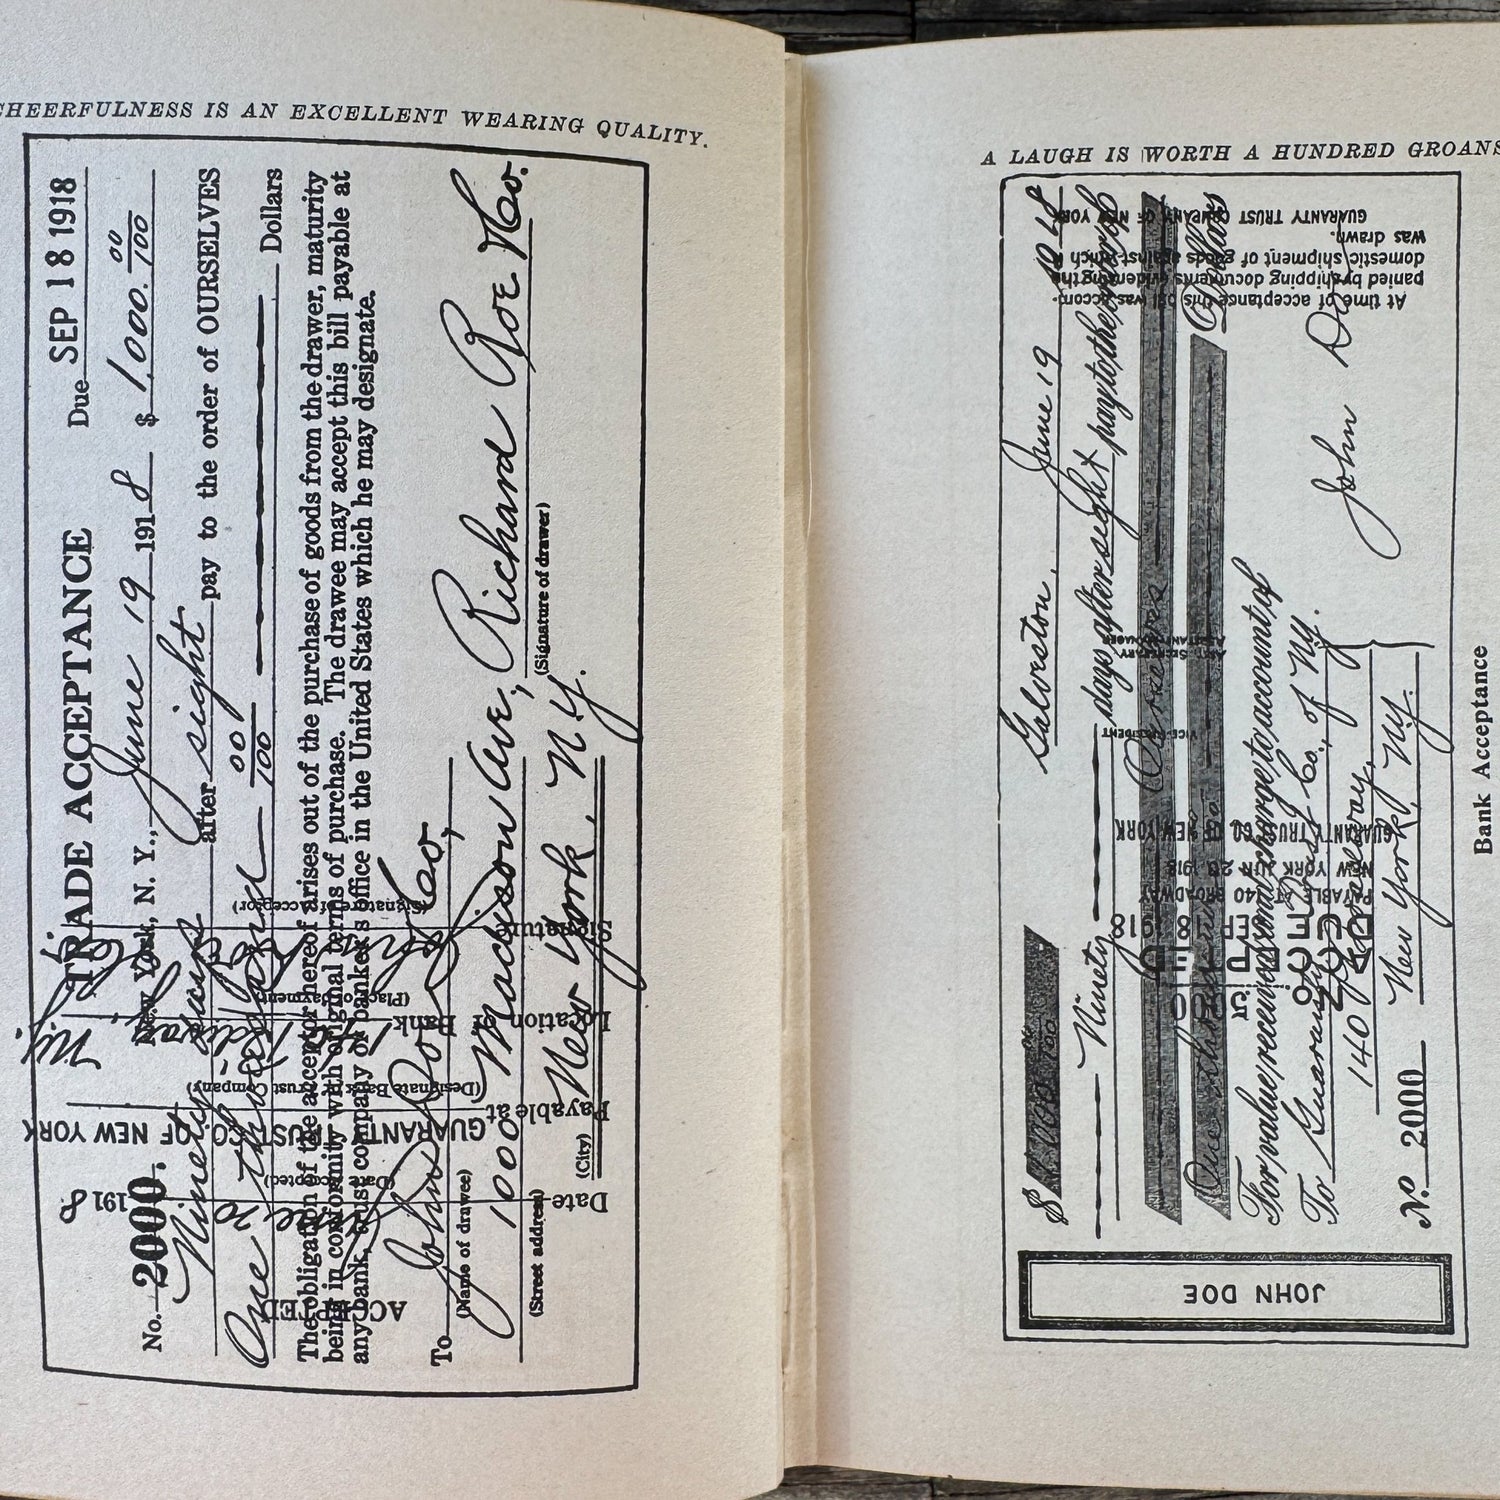 CHEERFULNESS IS AN EXCELLENT WEARING QUALITY.
TRADE ACCEPTANCE
Due SEP 18 1918
No. 2000. New York, N. Y., June 19 1918 $ 1,000. 00/100
Ninety days after sight pay to the order of OURSELVES
One Thousand 00/100 Dollars
The obligation of the acceptor hereof arises out of the purchase of goods from the drawer, maturity
being in conformity with original terms of purchase. The drawee may accept this bill payable at
any bank, trust company or banker's office in the United States which he may designate.
To John Doe Co.,
(Name of drawee)
1000 Madison Ave., Richard Roe & Co.
(Street address) (Signature of drawer)
New York, N.Y.
(City)
ACCEPTED
Date June 20 1918
(Date accepted)
Payable at GUARANTY TRUST CO. OF NEW YORK
(Designate Bank or Trust Company)
Location of Bank N.Y.
(Place of payment)
Signature
(Signature of Acceptor)
A LAUGH IS WORTH A HUNDRED GROANS
JOHN DOE
$ 1000 00/100 Galveston, June 19 1918
Ninety days after sight pay to the order of
Ourselves
One thousand Dollars
For value received and charge to account of
To Guaranty Trust Co., of N.Y.
140 Broadway,
New York, N.Y.
John Doe
No. 2000
No 5000
ACCEPTED
DUE SEP 18 1918
PAYABLE AT 140 BROADWAY
NEW YORK JUN 20 1918
GUARANTY TRUST CO. OF NEW YORK
VICE PRESIDENT
ASST. SECRETARY
At time of acceptance this bill was accom-
panied by shipping documents evidencing the
domestic shipment of goods against which it
was drawn.
GUARANTY TRUST COMPANY OF NEW YORK
Bank Acceptance